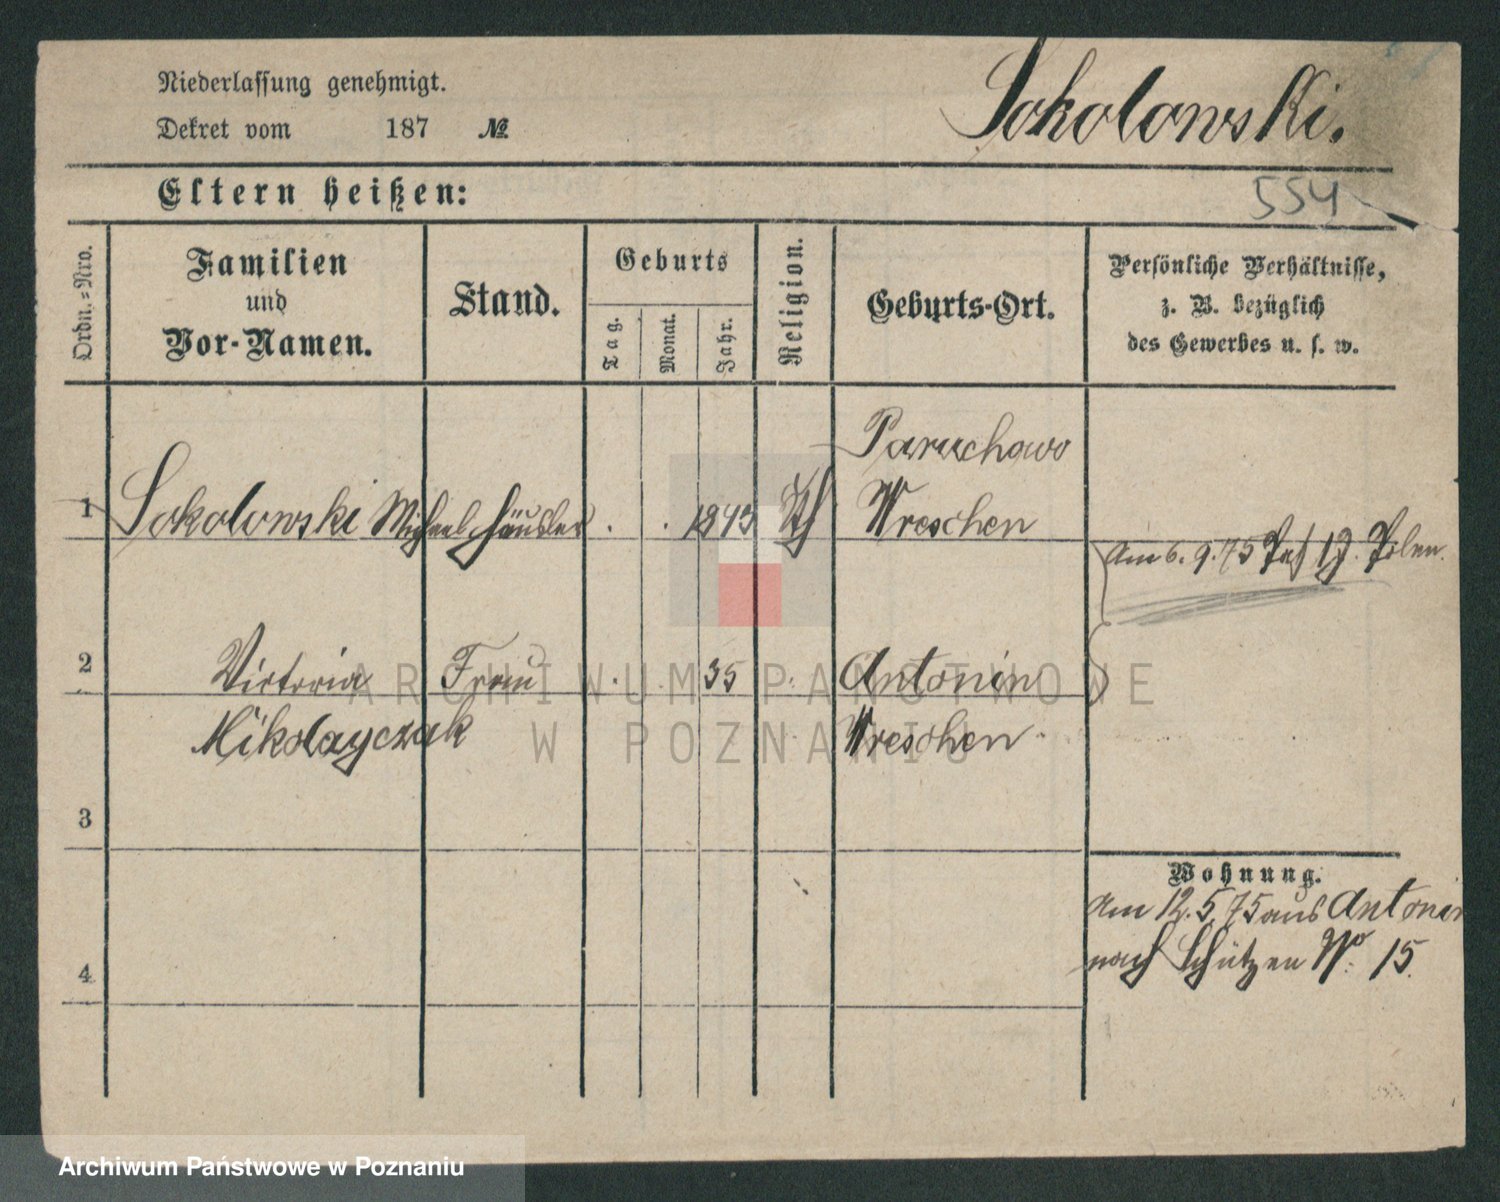 Niederlassung genehmigt.
Dekret vom 187 №
Sokolowski.
Eltern heißen:
554
Ordn.-Nro.
Familien
und
Vor-Namen.
Stand.
Geburts
Tag.
Monat.
Jahr.
Religion.
Geburts-Ort.
Persönliche Verhältnisse,
z. B. bezüglich
des Gewerbes u. s. w.
Paruchowo
1 Sokolowski Michael Häusler . . 1843 Kth Wreschen
Am 6. 9. 75 Paß Polen.
2 Victoria Frau . 35 Antonin
Mikolayczak Wreschen
3
Wohnung.
Am 12. 5 75 aus Antonin
nach Schützen No. 15.
4
ARCHIWUM PAŃSTWOWE
W POZNANIU
Archiwum Państwowe w Poznaniu